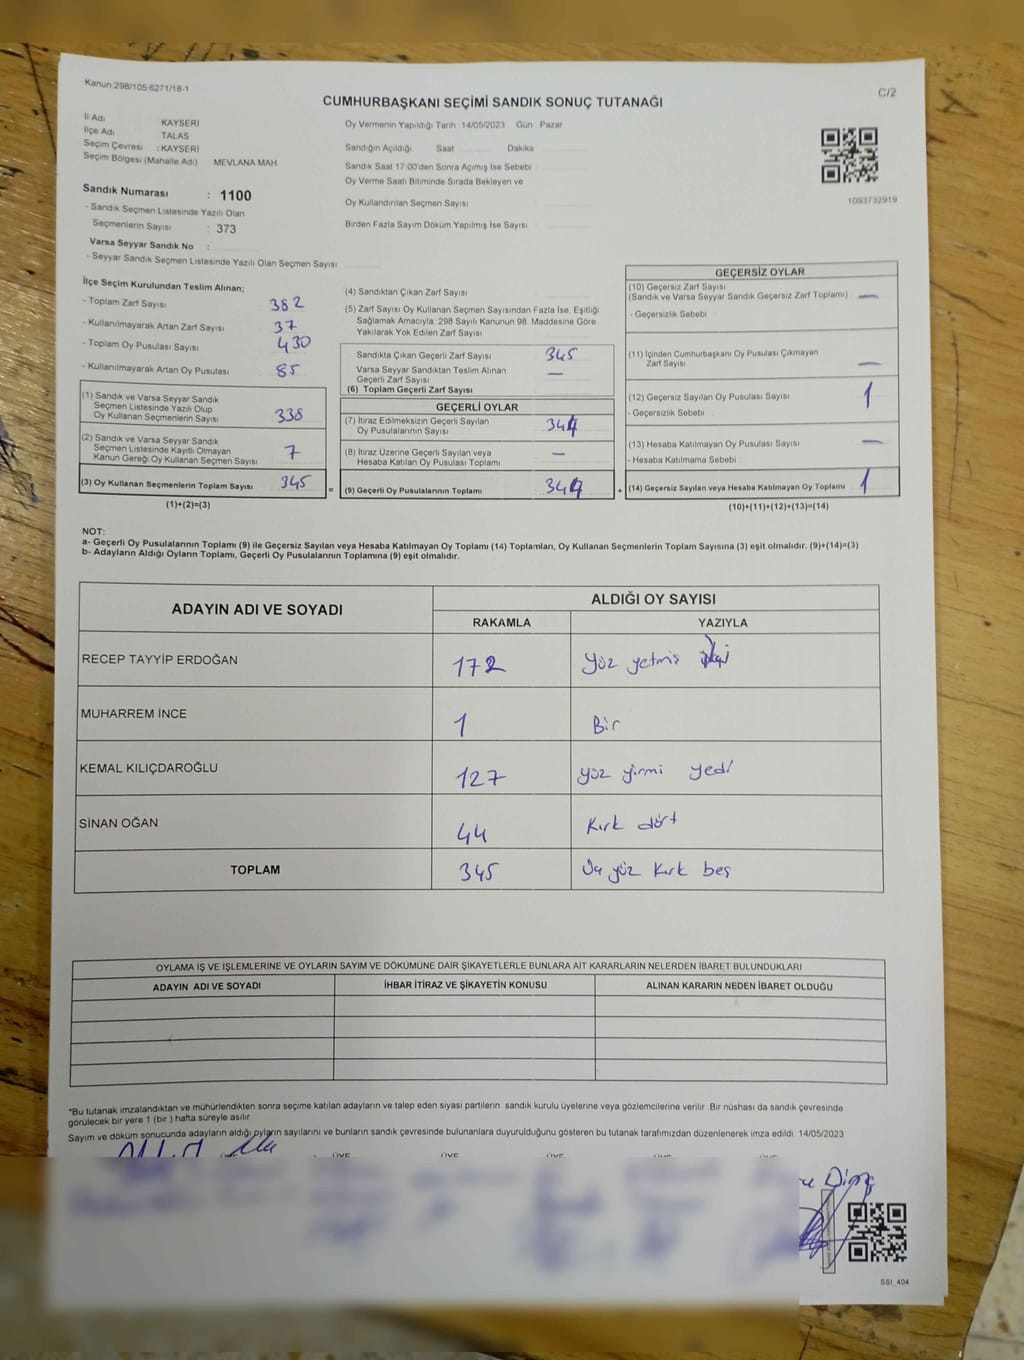 Kanun:298/105;6271/18-1
C/2
CUMHURBAŞKANI SEÇİMİ SANDIK SONUÇ TUTANAĞI
İl Adı KAYSERİ
İlçe Adı TALAS
Seçim Çevresi : KAYSERİ
Seçim Bölgesi (Mahalle Adı) MEVLANA MAH
Sandık Numarası : 1100
- Sandık Seçmen Listesinde Yazılı Olan
Seçmenlerin Sayısı : 373
Varsa Seyyar Sandık No :
- Seyyar Sandık Seçmen Listesinde Yazılı Olan Seçmen Sayısı
Oy Vermenin Yapıldığı Tarih 14/05/2023 Gün Pazar
Sandığın Açıldığı Saat Dakika
Sandık Saat 17:00'den Sonra Açımış İse Sebebi
Oy Verme Saati Bitiminde Sırada Bekleyen ve
Oy Kullandırılan Seçmen Sayısı
Birden Fazla Sayım Döküm Yapılmış İse Sayısı
1093732919
İlçe Seçim Kurulundan Teslim Alınan;
- Toplam Zarf Sayısı 382
- Kullanılmayarak Artan Zarf Sayısı 37
- Toplam Oy Pusulası Sayısı 430
- Kullanılmayarak Artan Oy Pusulası 85
(1) Sandık ve Varsa Seyyar Sandık
Seçmen Listesinde Yazılı Olup
Oy Kullanan Seçmenlerin Sayısı 338
(2) Sandık ve Varsa Seyyar Sandık
Seçmen Listesinde Kayıtlı Olmayan
Kanun Gereği Oy Kullanan Seçmen Sayısı 7
(3) Oy Kullanan Seçmenlerin Toplam Sayısı 345 =
(1)+(2)=(3)
(4) Sandıktan Çıkan Zarf Sayısı
(5) Zarf Sayısı Oy Kullanan Seçmen Sayısından Fazla İse, Eşitliği
Sağlamak Amacıyla, 298 Sayılı Kanunun 98. Maddesine Göre
Yakılarak Yok Edilen Zarf Sayısı
Sandıkta Çıkan Geçerli Zarf Sayısı 345
Varsa Seyyar Sandıktan Teslim Alınan
Geçerli Zarf Sayısı —
(6) Toplam Geçerli Zarf Sayısı
GEÇERLİ OYLAR
(7) İtiraz Edilmeksizin Geçerli Sayılan
Oy Pusulalarının Sayısı 344
(8) İtiraz Üzerine Geçerli Sayılan veya
Hesaba Katılan Oy Pusulası Toplamı —
(9) Geçerli Oy Pusulalarının Toplamı 344 +
GEÇERSİZ OYLAR
(10) Geçersiz Zarf Sayısı
(Sandık ve Varsa Seyyar Sandık Geçersiz Zarf Toplamı) —
- Geçersizlik Sebebi
(11) İçinden Cumhurbaşkanı Oy Pusulası Çıkmayan
Zarf Sayısı —
(12) Geçersiz Sayılan Oy Pusulası Sayısı 1
- Geçersizlik Sebebi
(13) Hesaba Katılmayan Oy Pusulası Sayısı —
- Hesaba Katılmama Sebebi
(14) Geçersiz Sayılan veya Hesaba Katılmayan Oy Toplamı 1
(10)+(11)+(12)+(13)=(14)
NOT:
a- Geçerli Oy Pusulalarının Toplamı (9) ile Geçersiz Sayılan veya Hesaba Katılmayan Oy Toplamı (14) Toplamları, Oy Kullanan Seçmenlerin Toplam Sayısına (3) eşit olmalıdır. (9)+(14)=(3)
b- Adayların Aldığı Oyların Toplamı, Geçerli Oy Pusulalarının Toplamına (9) eşit olmalıdır.
ADAYIN ADI VE SOYADI ALDIĞI OY SAYISI
RAKAMLA YAZIYLA
RECEP TAYYİP ERDOĞAN 172 Yüz yetmiş iki
MUHARREM İNCE 1 Bir
KEMAL KILIÇDAROĞLU 127 yüz yirmi yedi
SİNAN OĞAN 44 Kırk dört
TOPLAM 345 Üç yüz kırk beş
OYLAMA İŞ VE İŞLEMLERİNE VE OYLARIN SAYIM VE DÖKÜMÜNE DAİR ŞİKAYETLERLE BUNLARA AİT KARARLARIN NELERDEN İBARET BULUNDUKLARI
ADAYIN ADI VE SOYADI İHBAR İTİRAZ VE ŞİKAYETİN KONUSU ALINAN KARARIN NEDEN İBARET OLDUĞU
*Bu tutanak imzalandıktan ve mühürlendikten sonra seçime katılan adayların ve talep eden siyasi partilerin sandık kurulu üyelerine veya gözlemcilerine verilir. Bir nüshası da sandık çevresinde
görülecek bir yere 1 (bir) hafta süreyle asılır.
Sayım ve döküm sonucunda adayların aldığı oyların sayılarını ve bunların sandık çevresinde bulunanlara duyurulduğunu gösteren bu tutanak tarafımızdan düzenlenerek imza edildi. 14/05/2023
SSI_404